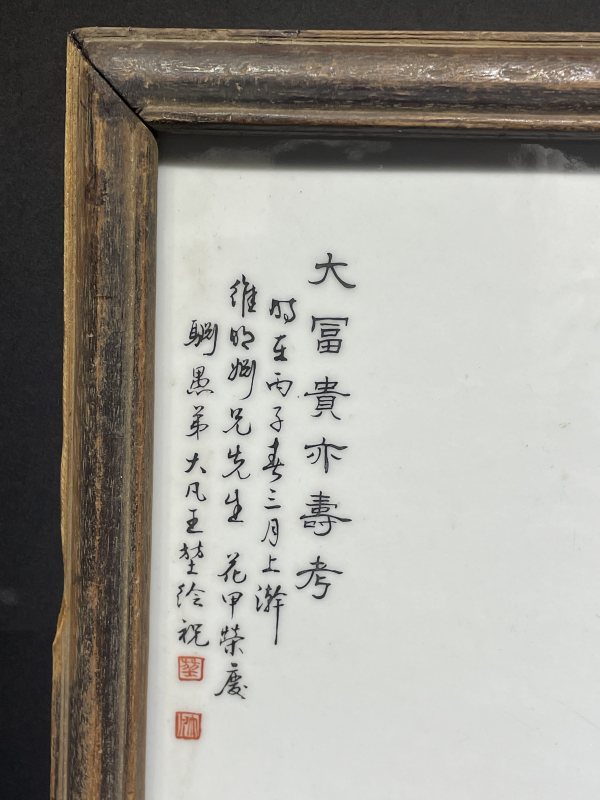 大冨貴亦壽考
時在丙子春三月上澣
維明婣兄先生 花甲榮慶
婣愚弟大凡王堃绘祝
堃